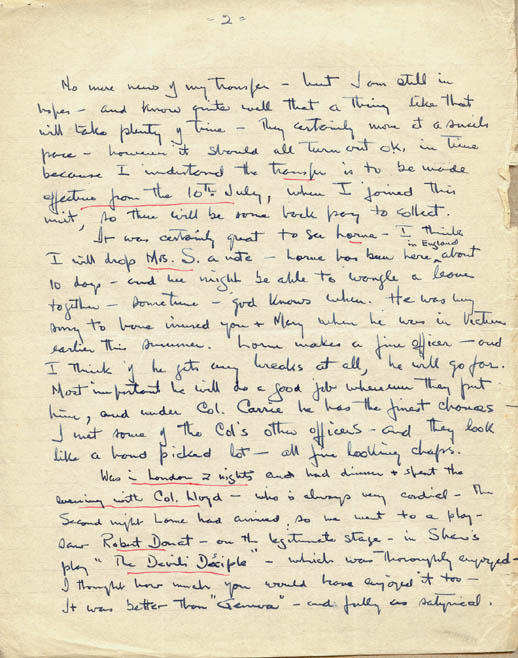 - 2 -
No more news of my transfer - but I am still in
hopes - and know quite well that a thing like that
will take plenty of time - They certainly move at a snails
pace - however it should all turn out OK, in time
because I understand the transfer is to be made
effective from the 10th July, when I joined this
unit, so there will be some back pay to collect.
It was certainly great to see Lorne - I think
in England
I will drop Mrs. S. a note - Lorne has been here about
10 days - and we might be able to wangle a leave
together - sometime - god knows when. He was very
sorry to have missed you + Mary when he was in
earlier this summer. Lorne makes a fine officer - and
I think if he gets any breaks at all, he will go far.
Most important he will do a good job wherever they put
him, and under Col. Carrie he has the finest chances
I met some of the Col's other officers - and they look
like a hand picked lot - all fine looking chaps.
Was in London 2 nights and had dinner + spent the
evening with Col. - who is always very cordial - The
Second night Lorne had arrived, so we went to a play -
saw Robert Donat - on the legitimate stage - in Shaw's
play "The Devils Disciple" - which was thoroughly enjoyed -
I thought how much you would have enjoyed it too -
It was better than "Geneva" - and fully as satyrical.